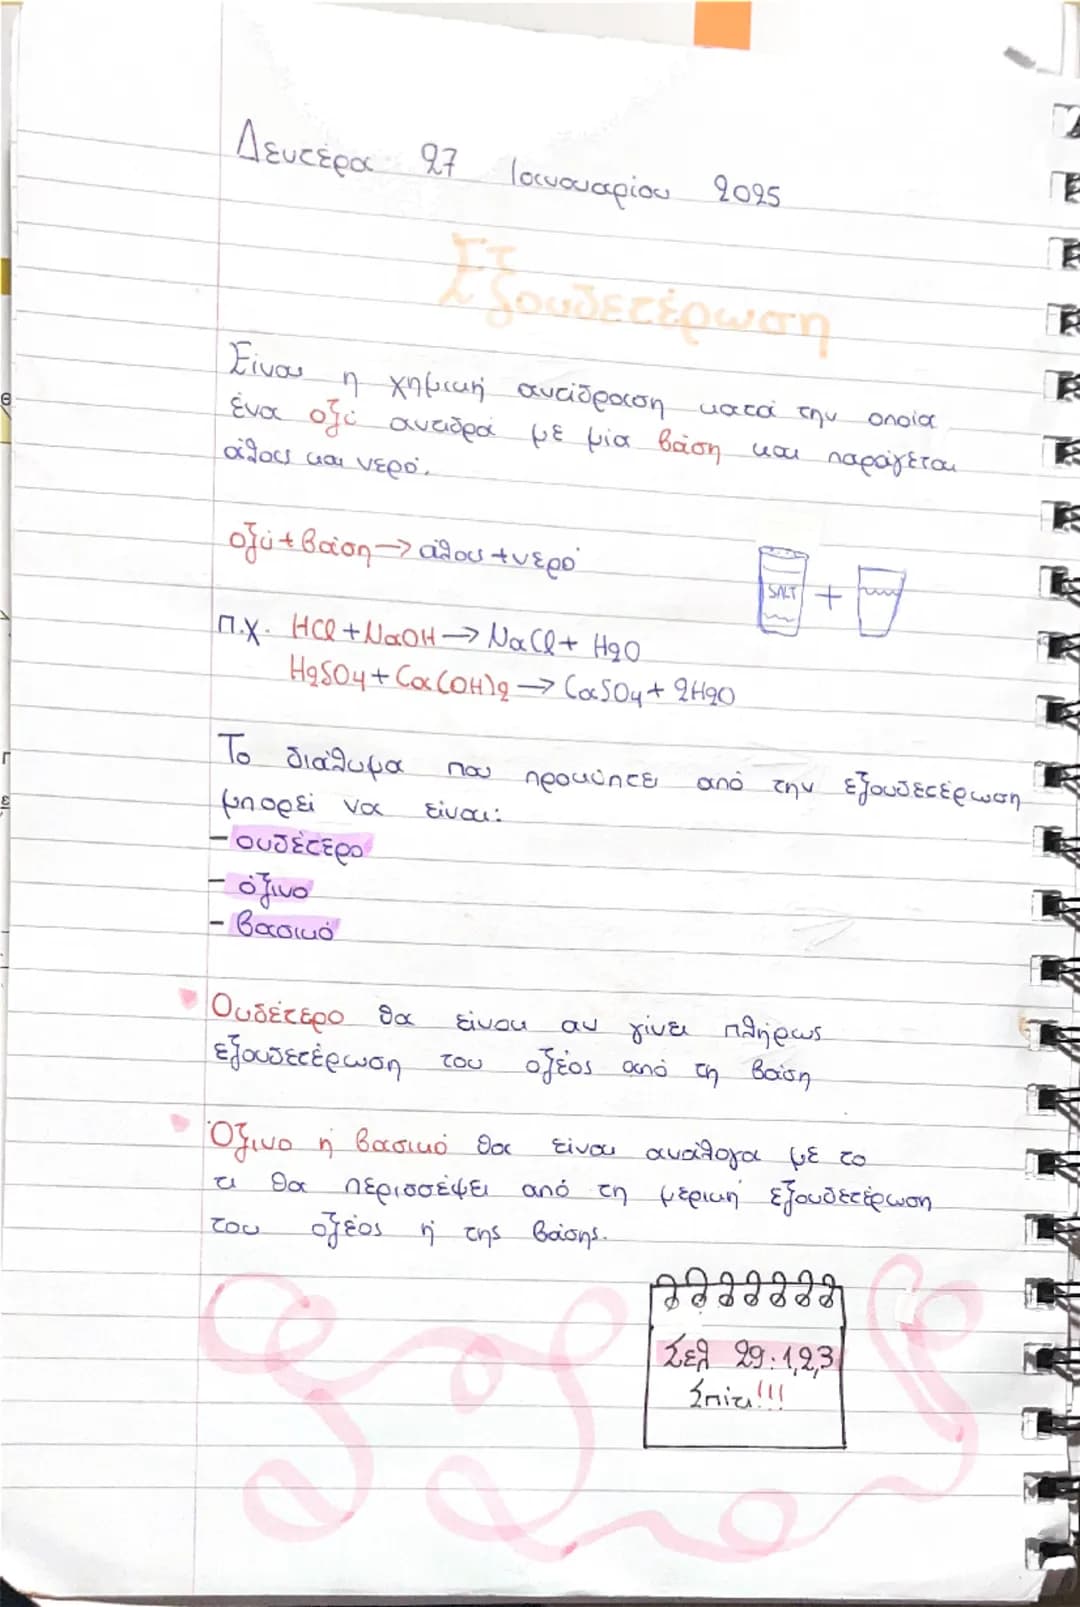 Δευτέρα 27 Ιανουαρίου 2025
Εξουδετέρωση
Είναι η χημική αντίδραση κατά την οποία
ένα οξύ αντιδρά με μία βάση και παράγεται
άλας και νερό.
οξύ + βάση → άλας + νερό
SALT +
π.χ. HCl + NaOH → NaCl + H2O
H2SO4 + Ca(OH)2 → CaSO4 + 2H2O
Το διάλυμα που προκύπτει από την εξουδετέρωση
μπορεί να είναι:
- ουδέτερο
- όξινο
- βασικό
Ουδέτερο θα είναι αν γίνει πλήρως
εξουδετέρωση του οξέος από τη βάση
Όξινο ή βασικό θα είναι ανάλογα με το
τι θα περισσέψει από τη μερική εξουδετέρωση
του οξέος ή της βάσης.
Σελ 29: 1,2,3
Σπίτι!!!